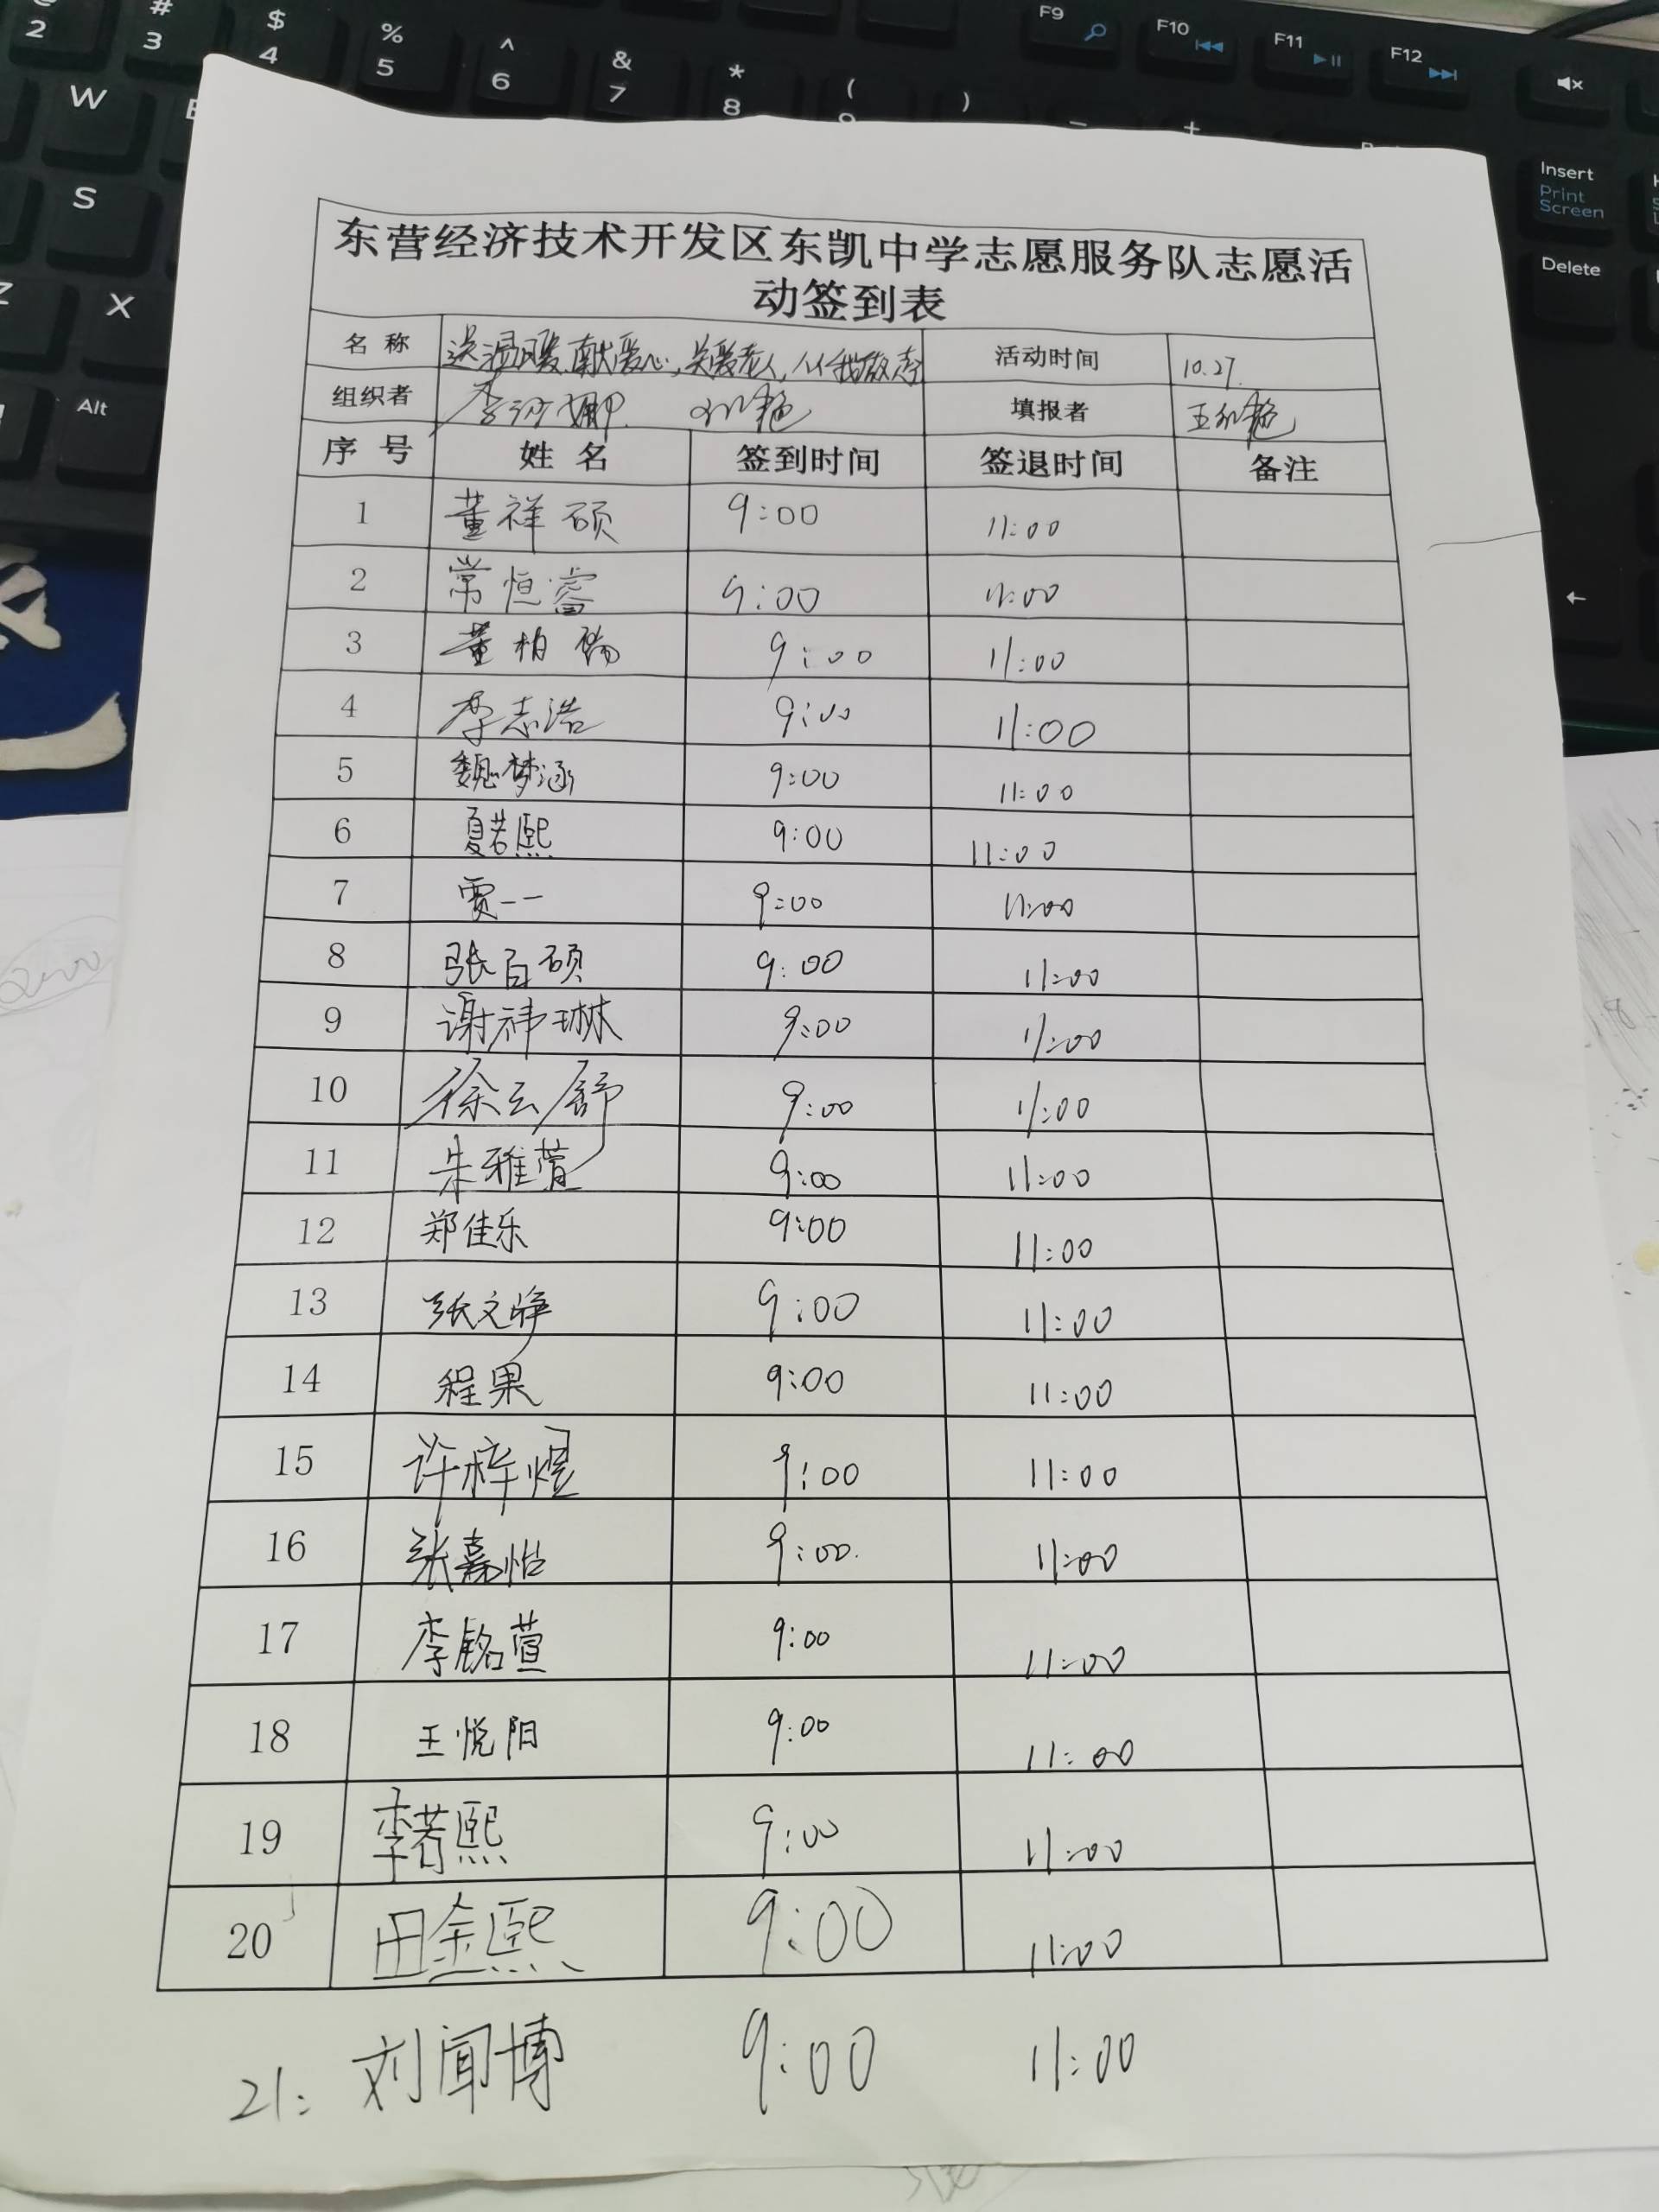 @ 2
# 3
$ 4
% 5
^ 6
& 7
* 8
(
)
F9
F10
F11
F12
W
S
X
Alt
Insert
Print
Screen
Delete
东营经济技术开发区东凯中学志愿服务队志愿活
动签到表
名 称 送温暖献爱心,关爱老人,从我做起 活动时间 10.27.
组织者 填报者
序 号 姓 名 签到时间 签退时间 备注
1 董祥硕 9:00 11:00
2 常恒睿 9:00 11:00
3 董柏 9:00 11:00
4 李志浩 9:00 11:00
5 魏梦涵 9:00 11:00
6 夏若熙 9:00 11:00
7 贾一一 9:00 11:00
8 张百硕 9:00 11:00
9 谢祎琳 9:00 11:00
10 徐云舒 9:00 11:00
11 朱雅萱 9:00 11:00
12 郑佳乐 9:00 11:00
13 张文峥 9:00 11:00
14 程果 9:00 11:00
15 许梓煜 9:00 11:00
16 张嘉怡 9:00 11:00
17 李铭萱 9:00 11:00
18 王悦阳 9:00 11:00
19 李若熙 9:00 11:00
20 田金熙 9:00 11:00
21: 刘闻博 9:00 11:00